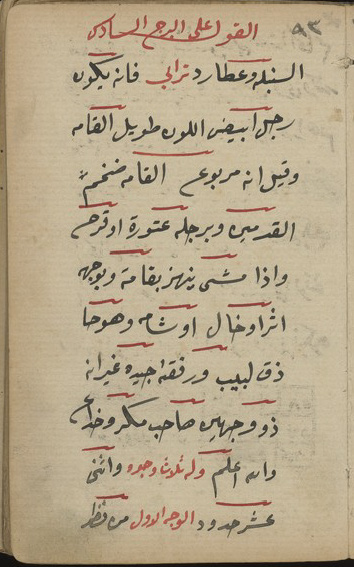 ٩٣
القول على البرج السادس
السنبله وعطارد ترابي فانه يكون
رجل ابيض اللون طويل القامه
وقيل انه مربوع القامه ضخم
القدمين وبرجله عثورة او قرح
واذا مشى ينهز بقامته وبوجهه
اثر او خال او شامه وهو حا
ذق لبيب ورفقه جيده غير انه
ذو وجهين صاحب مكر وخداع
والله اعلم وله ثلاث وجوه واثنى
عشر حدود الوجه الاول من نظر